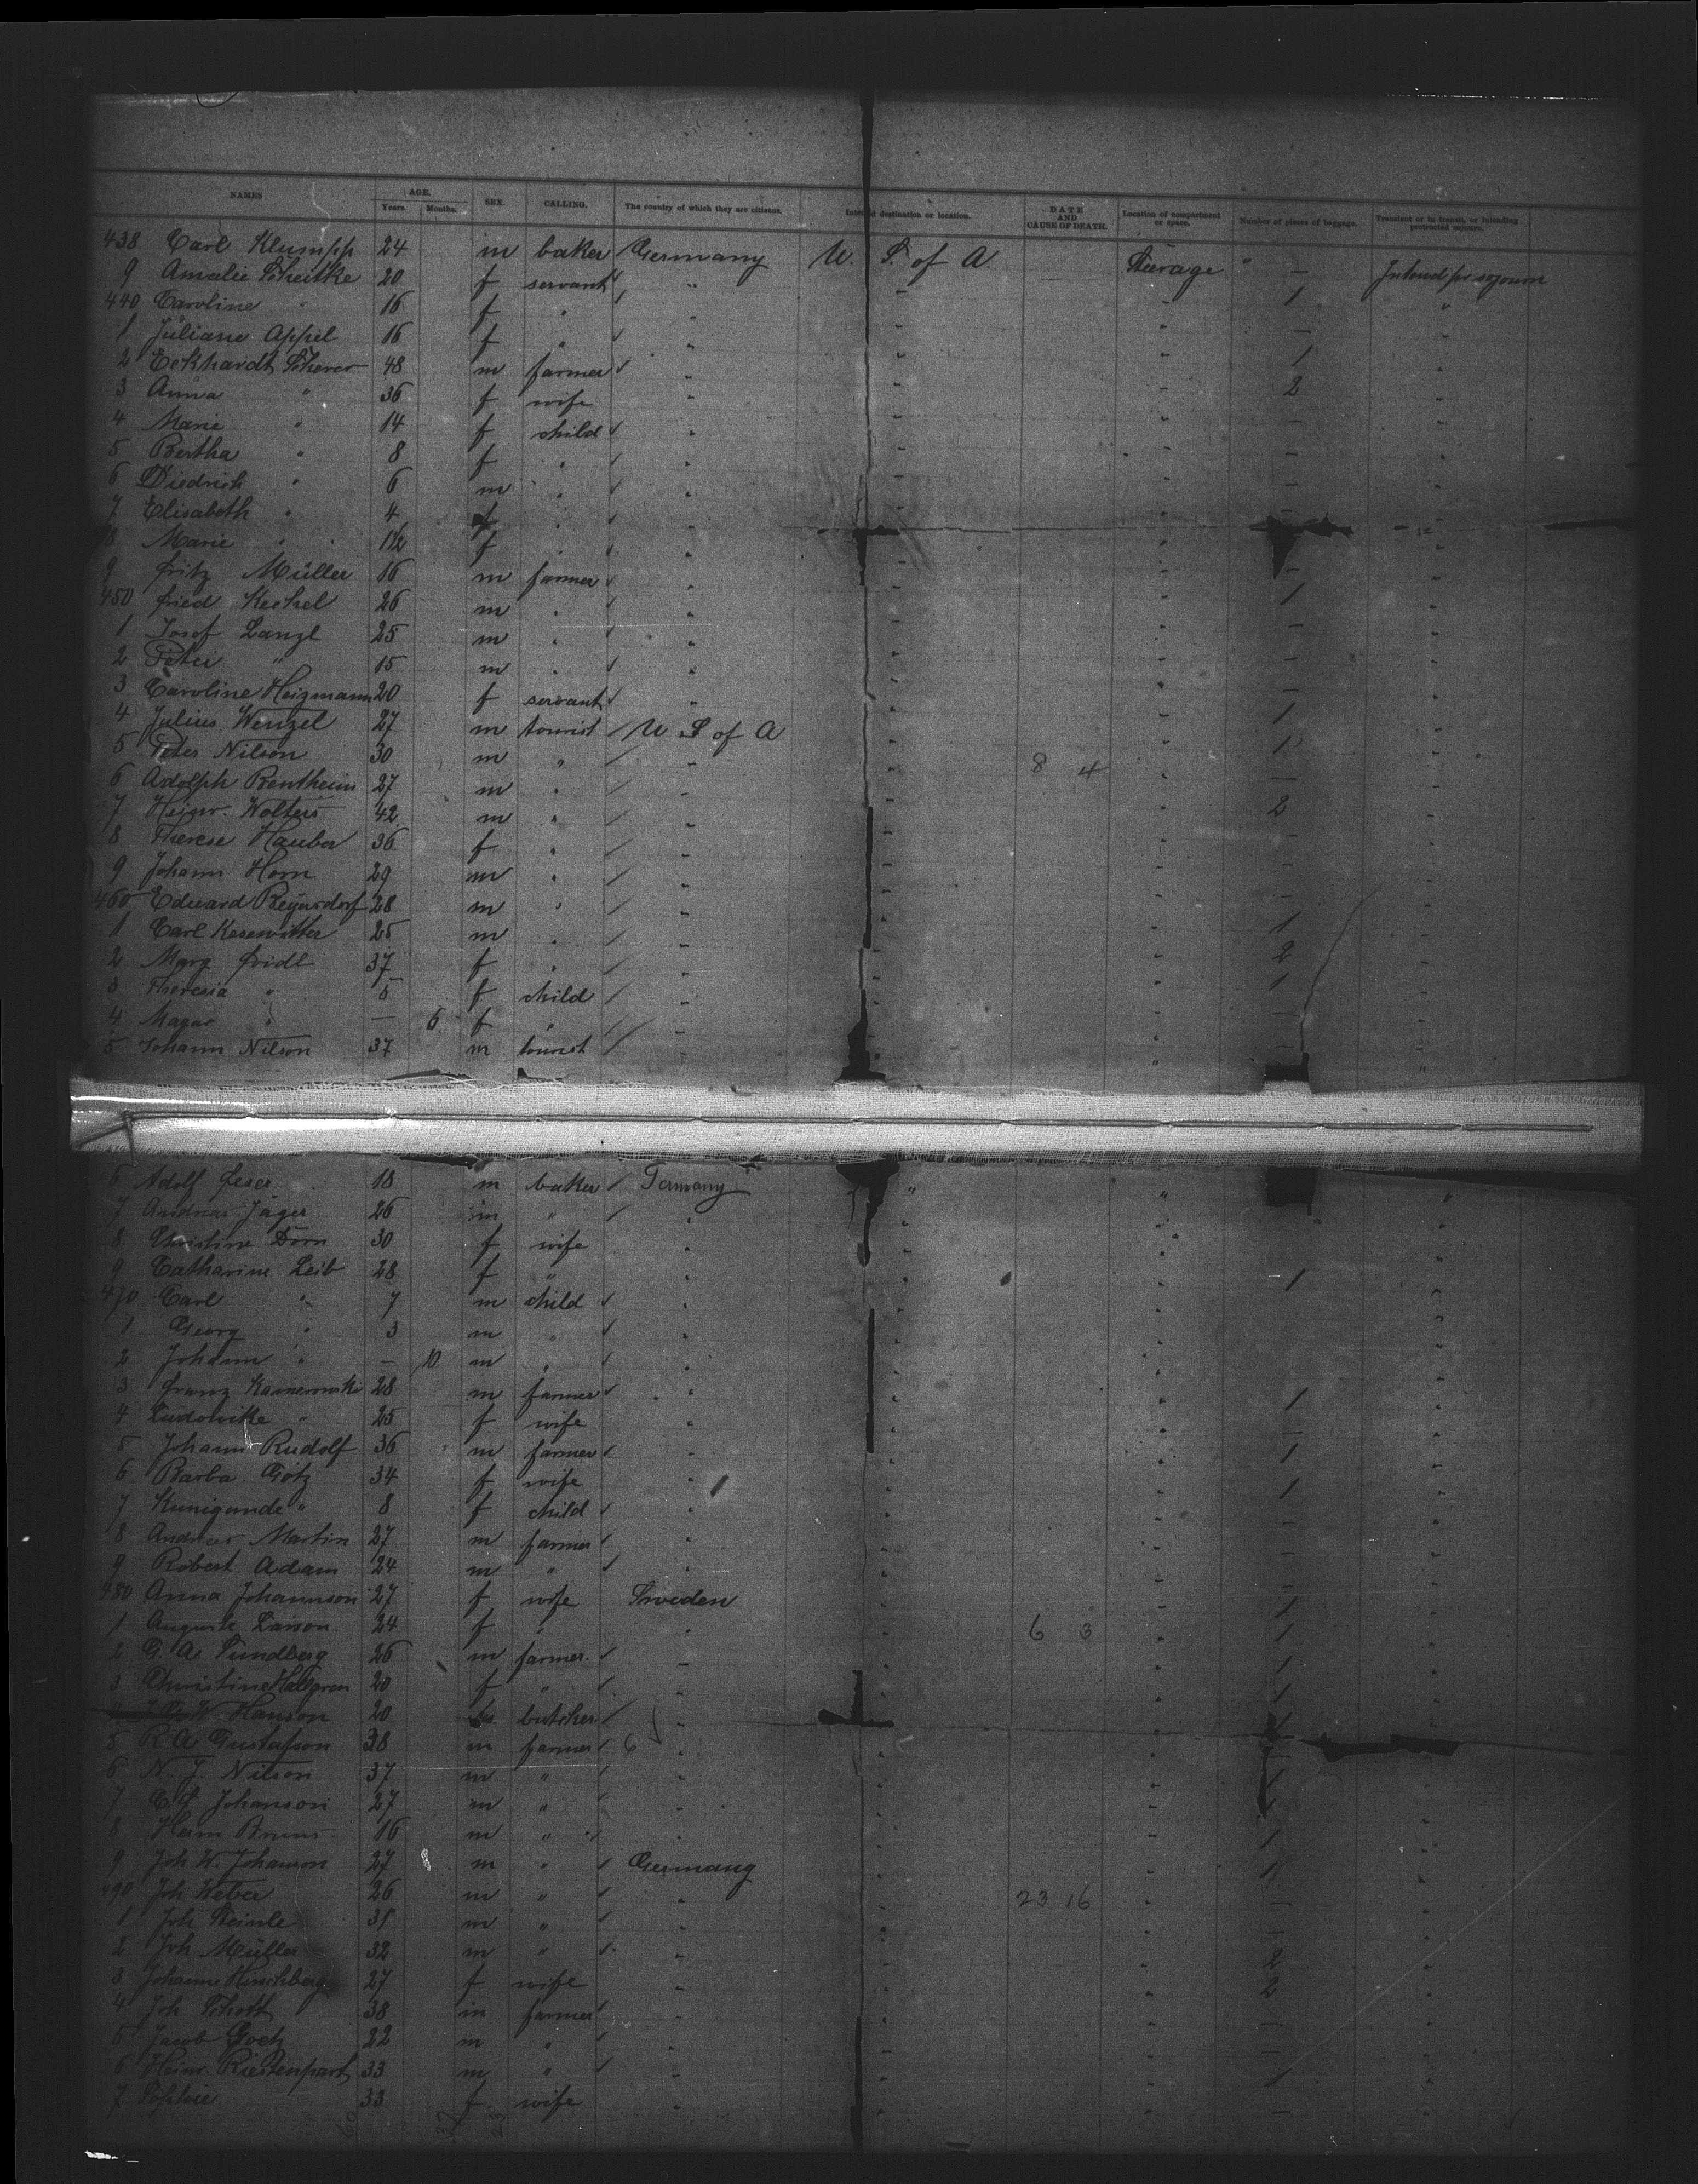 NAMES AGE. Years. Months. SEX. CALLING. The country of which they are citizens. Intended destination or location. DATE AND CAUSE OF DEATH. Location of compartment or space. Number of pieces of baggage. Transient or in transit, or intending protracted sojourn.
438 Carl Klumpp 24 m baker Germany U. S. of A. Steerage " - Intend pr sojourn
9 Amalie 20 f servant " 1
440 Caroline " 16 f " "
1 Juliane Appel 16 f " " 1
2 Eckhardt Scherer 48 m farmer " 2
3 Anna " 36 f wife "
4 Marie " 14 f child "
5 Bertha " 8 f " "
6 Diedrich " 6 m " "
7 Elisabeth " 4 f " "
8 Marie " 1½ f " "
9 Fritz Müller 16 m farmer " 1
450 Fried Kechel 26 m " "
1 Josef Lanzl 25 m " "
2 Peter " 15 m " "
3 Caroline Heizmann 20 f servant " 1
4 Julius Wenzel 27 m tourist U S of A 1
5 Peter Nilson 30 m " " 8 4
6 Adolph Bentheim 27 m " " 2
7 Heinr. Wolters 42 m " "
8 Therese Hauber 36 f " "
9 Johann Horn 29 m " "
460 Eduard 28 m " " 1
1 Carl Kesewitter 25 m " " 2
2 Marg Fridl 37 f " " 1
3 Theresia " 5 f child "
4 " — 6 f " "
5 Johann Nilson 37 m tourist "
6 Adolf Feser 18 m baker Germany "
7 Andreas Jäger 26 m " "
8 Christine Dorn 30 f wife "
9 Catharine Leib 28 f " " 1
470 Carl " 7 m child "
1 Georg " 3 m " "
2 Johann " — 10 m " "
3 Franz 28 m farmer " 1
4 " 25 f wife "
5 Johann Rudolf 36 m farmer " 1
6 Barba Götz 34 f wife " 1
7 Kunigunde " 8 f child "
8 Andreas Martin 27 m farmer "
9 Robert Adam 24 m " "
480 Anna Johannson 27 f wife Sweden 1
1 Auguste 24 f " " 6 3 1
2 G. A. Sundberg 26 m farmer " 1
3 Christine Hallgren 20 f " " 1
W. Hanson 20 butcher "
5 R A Gustafson 38 m farmer 6 "
6 N. J. Nilson 37 m " " 1
7 Johanson 27 m " "
8 Herm Bruns 16 m " " 1
9 Joh W. Johanson 27 m " Germany 1
490 Joh Weber 26 m " " 23 16
1 Joh Steinle 31 m " "
2 Joh Müller 32 m " " 2
3 Johanne Hirschberg 27 f wife " 2
4 Joh Schott 38 m farmer "
5 Jacob Goetz 22 m " "
6 Heinr. Riestenpart 33 m " " 1
7 Sophie 33 f wife "